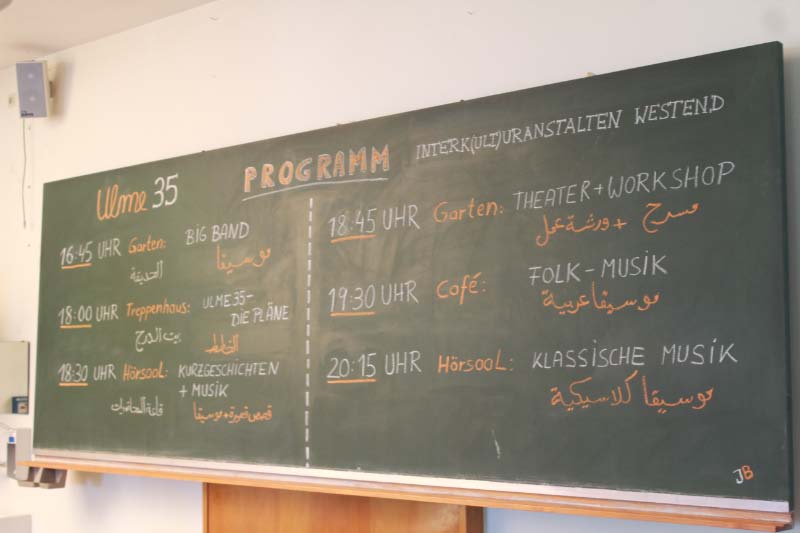 Ulme 35
PROGRAMM
INTERK(ULT)URANSTALTEN WESTEND
16:45 UHR Garten: BIG BAND
الحديقة موسيقا
18:00 UHR Treppenhaus: ULME35-
DIE PLÄNE
بيت الدرج الخطط
18:30 UHR Hörsaal: KURZGESCHICHTEN
+ MUSIK
قاعة المحاضرات قصص قصيرة + موسيقا
18:45 UHR Garten: THEATER + WORKSHOP
مسرح + ورشة عمل
19:30 UHR Café: FOLK-MUSIK
موسيقا عربية
20:15 UHR Hörsaal: KLASSISCHE MUSIK
موسيقا كلاسيكية
JB